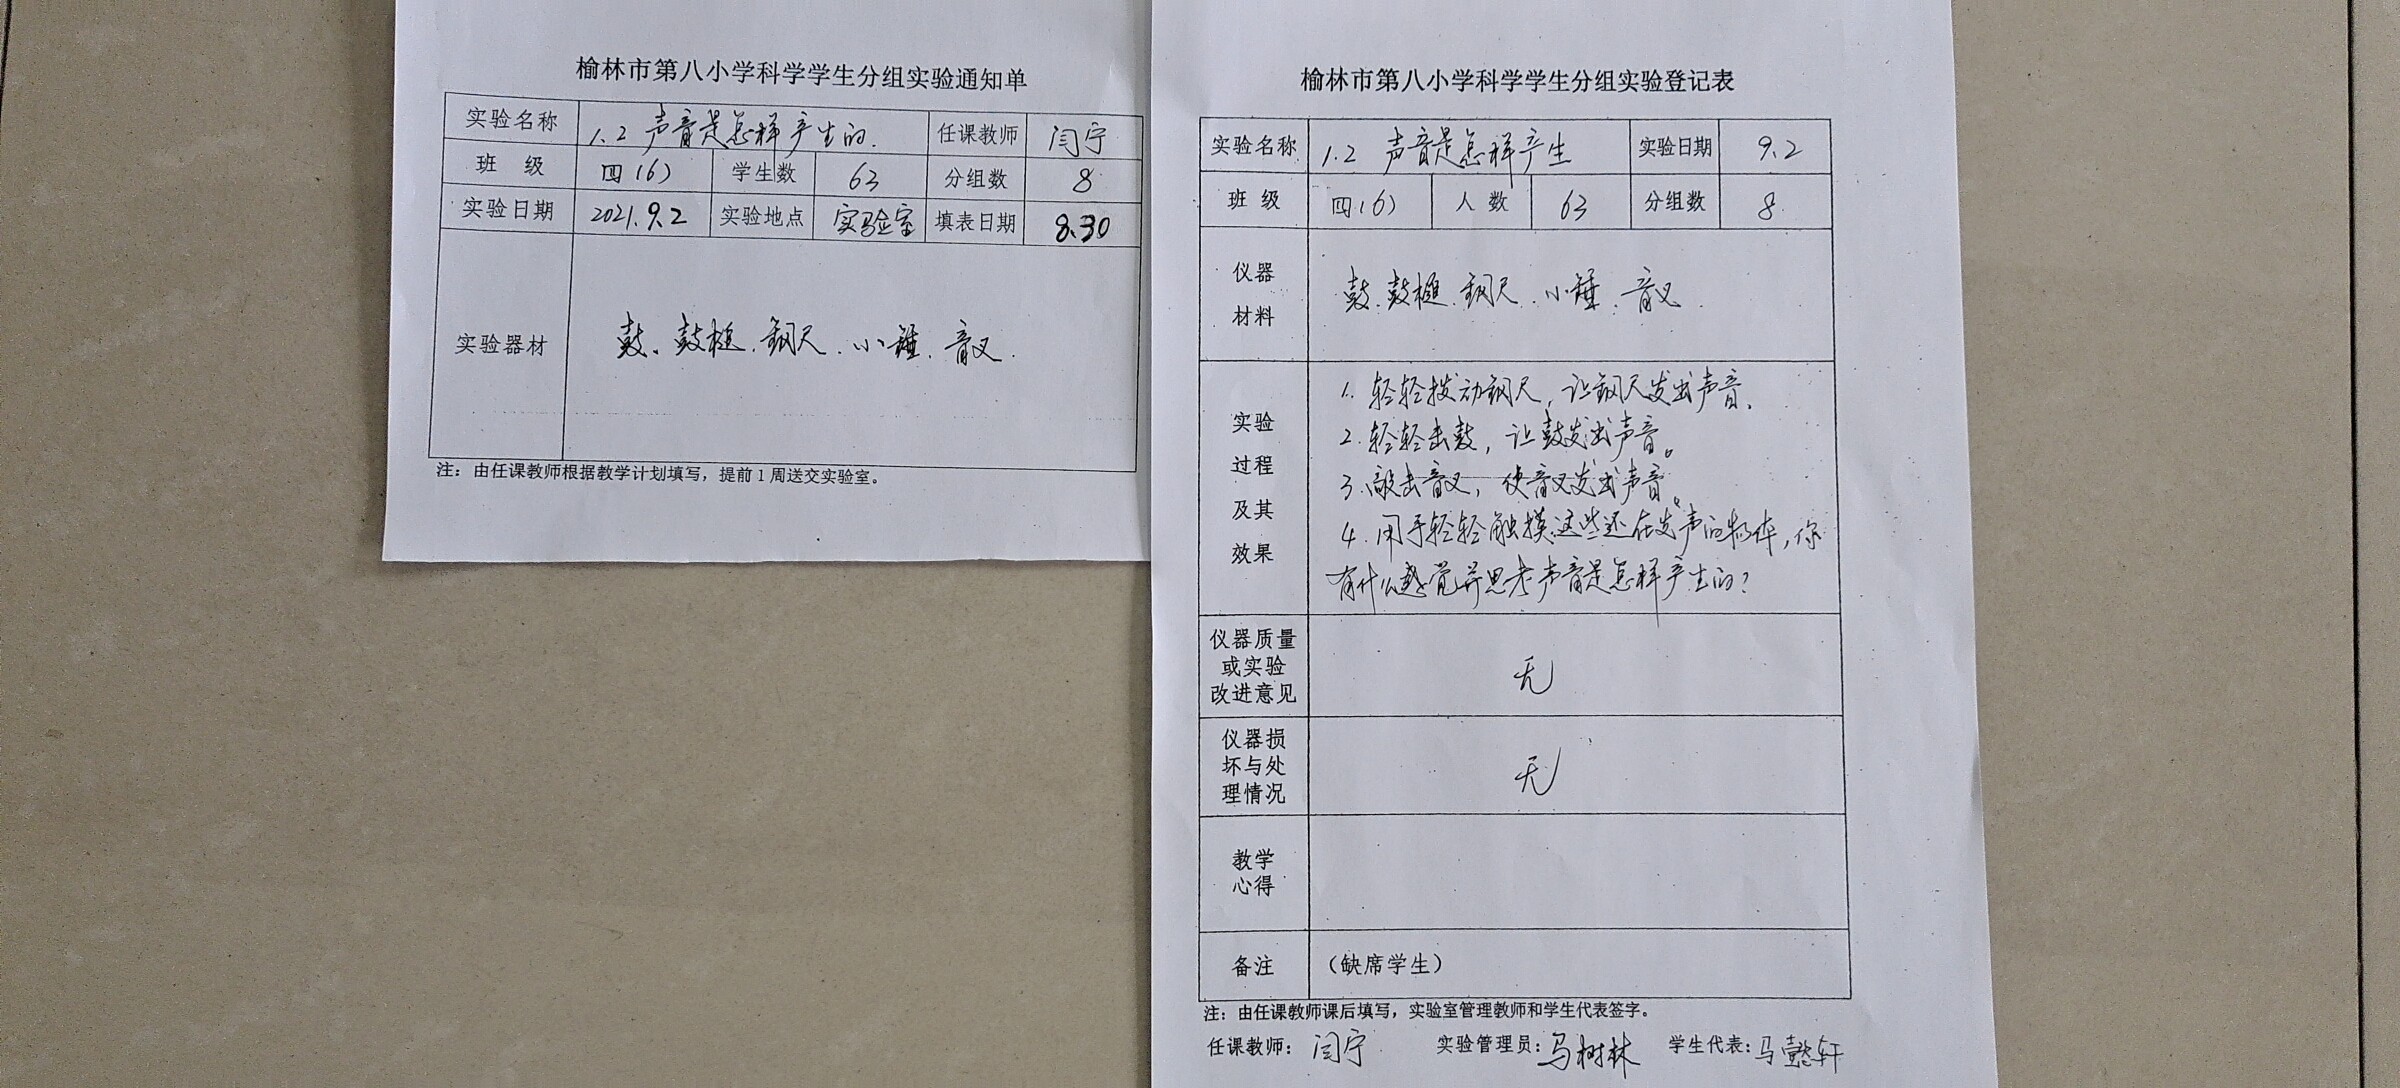 榆林市第八小学科学学生分组实验通知单
实验名称 1.2 声音是怎样产生的. 任课教师 闫宁
班 级 四(6) 学生数 63 分组数 8
实验日期 2021.9.2 实验地点 实验室 填表日期 8.30
实验器材 鼓、鼓槌、钢尺、小锤、音叉.
注：由任课教师根据教学计划填写，提前1周送交实验室。
榆林市第八小学科学学生分组实验登记表
实验名称 1.2 声音是怎样产生 实验日期 9.2
班 级 四(6) 人 数 63 分组数 8
仪器
材料
鼓、鼓槌、钢尺、小锤、音叉.
实验
过程
及其
效果
1. 轻轻拨动钢尺，让钢尺发出声音。
2. 轻轻击鼓，让鼓发出声音。
3. 敲击音叉，使音叉发出声音。
4. 用手轻轻触摸这些还在发声的物体，你
有什么感觉并思考声音是怎样产生的？
仪器质量
或实验
改进意见
无
仪器损
坏与处
理情况
无
教学
心得
备注 （缺席学生）
注：由任课教师课后填写，实验室管理教师和学生代表签字。
任课教师：闫宁 实验管理员：马树林 学生代表：马懿轩